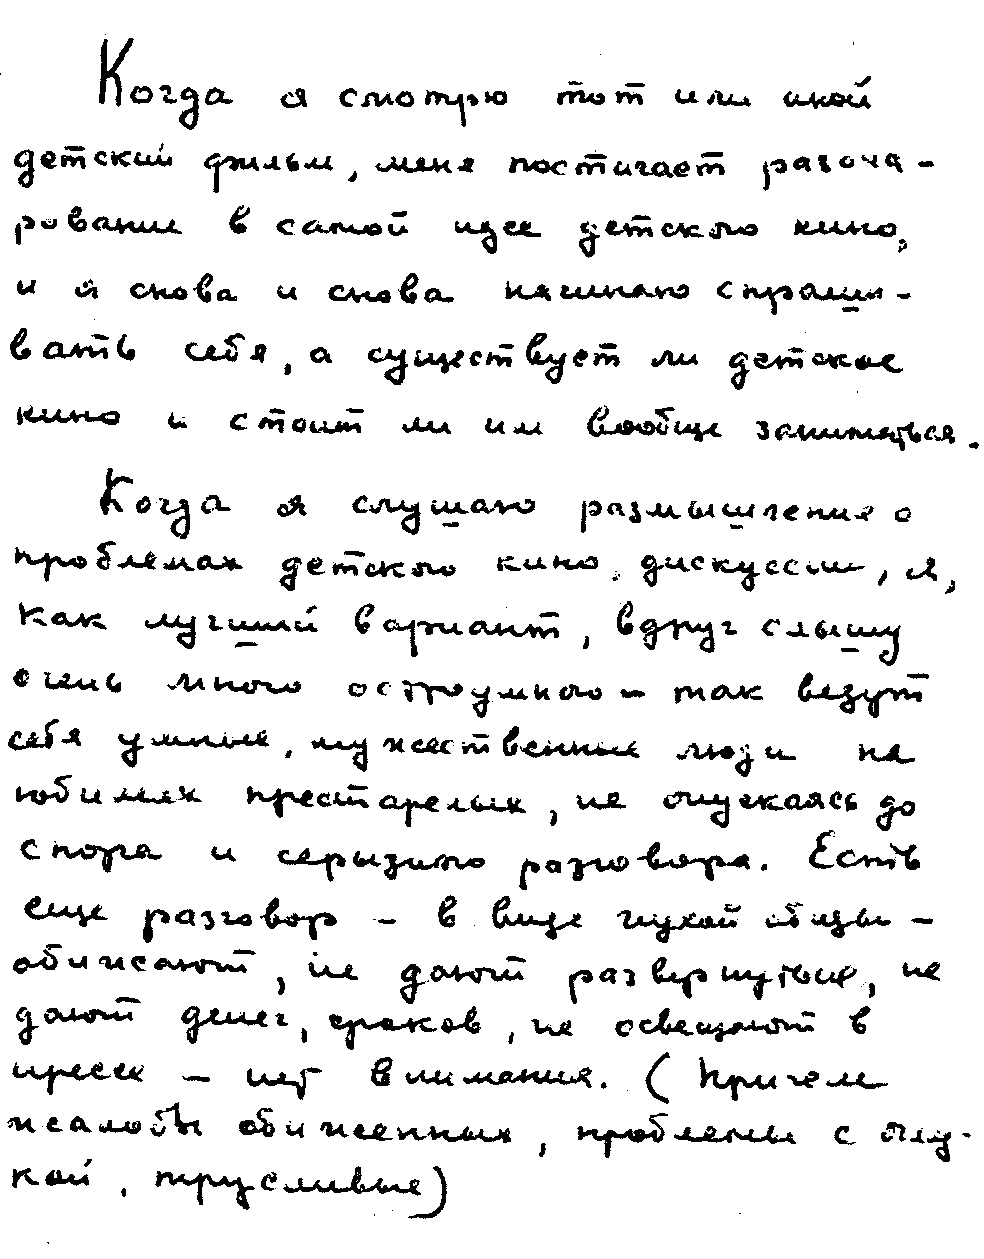 Когда я смотрю тот или иной
детский фильм, меня постигает разоча-
рование в самой идее детского кино,
и я снова и снова начинаю спраши-
вать себя, а существует ли детское
кино и стоит ли им вообще заниматься.
Когда я слушаю размышление о
проблемах детского кино, дискуссии, я,
как лучший вариант, вдруг слышу
очень много остроумного – так ведут
себя умные, мужественные люди на
юбилеях престарелых, не опускаясь до
спора и серьезного разговора. Есть
еще разговор – в виде глухой обиды –
обижают, не дают развернуться, не
дают денег, сроков, не освещают в
прессе – нет внимания. (Причем
жалобы обиженных, проблемы с оглуд-
кой, трусливые)